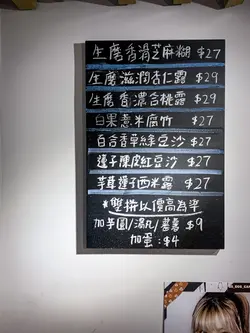 生磨香滑芝麻糊 $27
生磨滋潤杏仁露 $29
生磨香濃合桃露 $29
白果薏米腐竹 $27
百合香草綠豆沙 $27
蓮子陳皮紅豆沙 $27
芋茸蓮子西米露 $27
*雙拼以價高為準
加芋圓/湯丸/蕃薯 $9
加蛋:$4